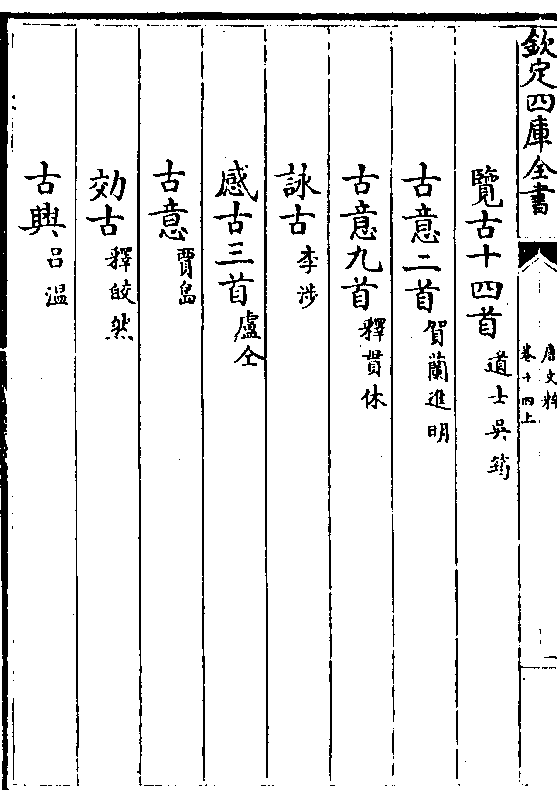 欽定四庫全書
唐文粹
卷十四上
一
覽古十四首 道士吳筠
古意二首 賀蘭進明
古意九首 釋貫休
詠古 李涉
感古三首 盧仝
古意 賈島
効古 釋皎然
古興 吕溫